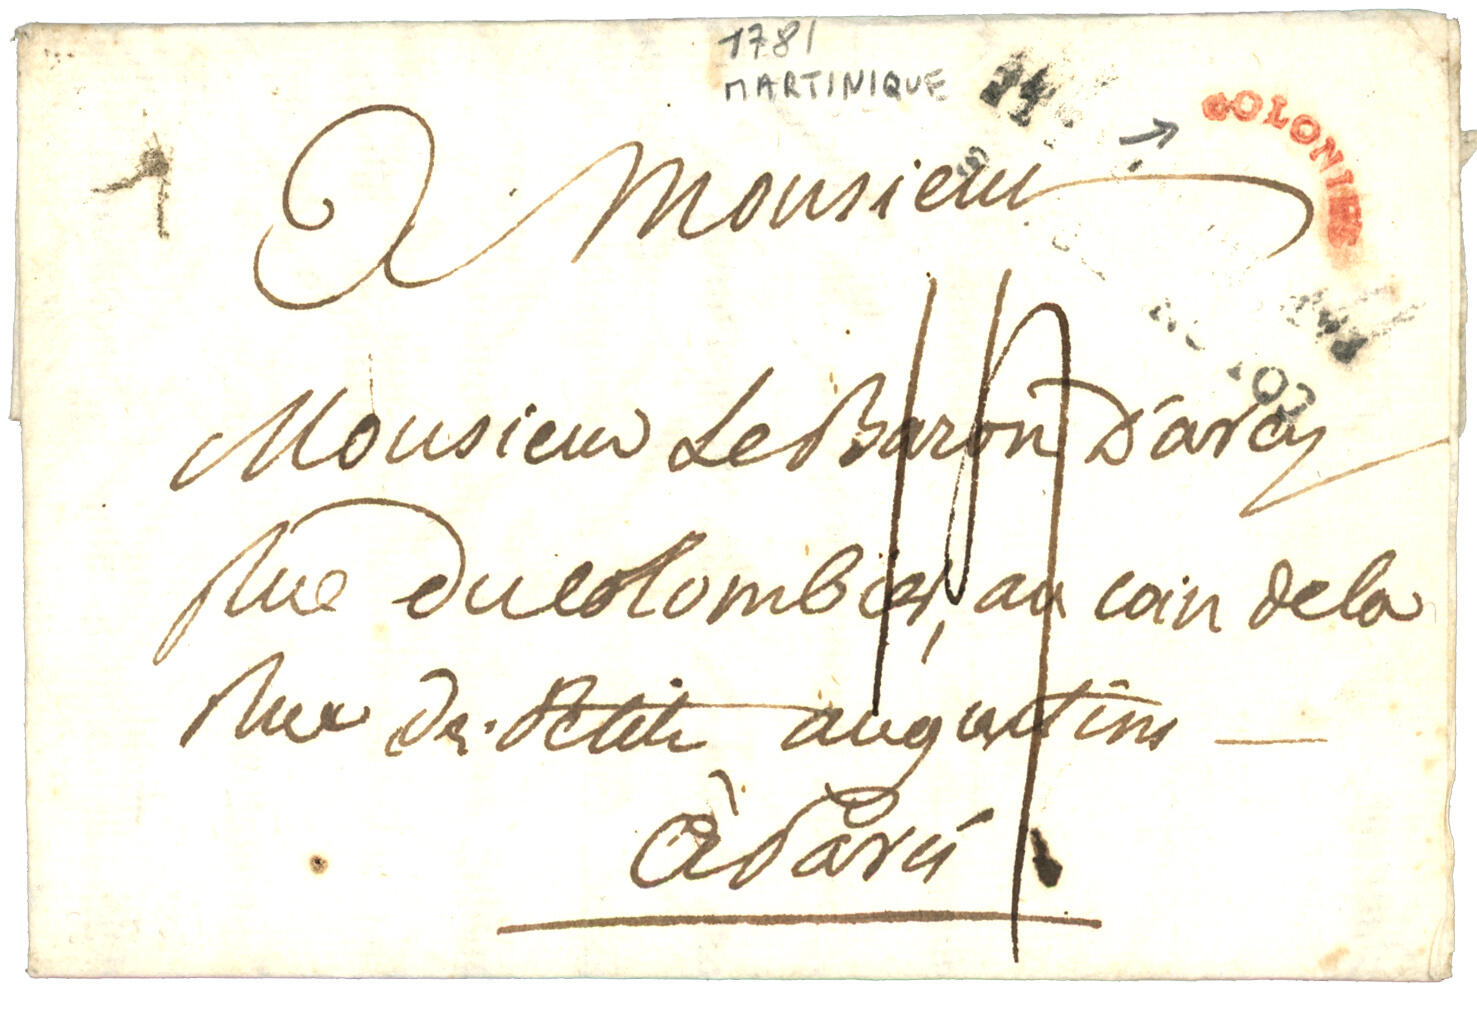 1781
MARTINIQUE
COLONIES
A Monsieur
Monsieur Le Baron D'arcy
Rue Du Colombier, au coin de la
Rue Des Petits augustins
à Paris